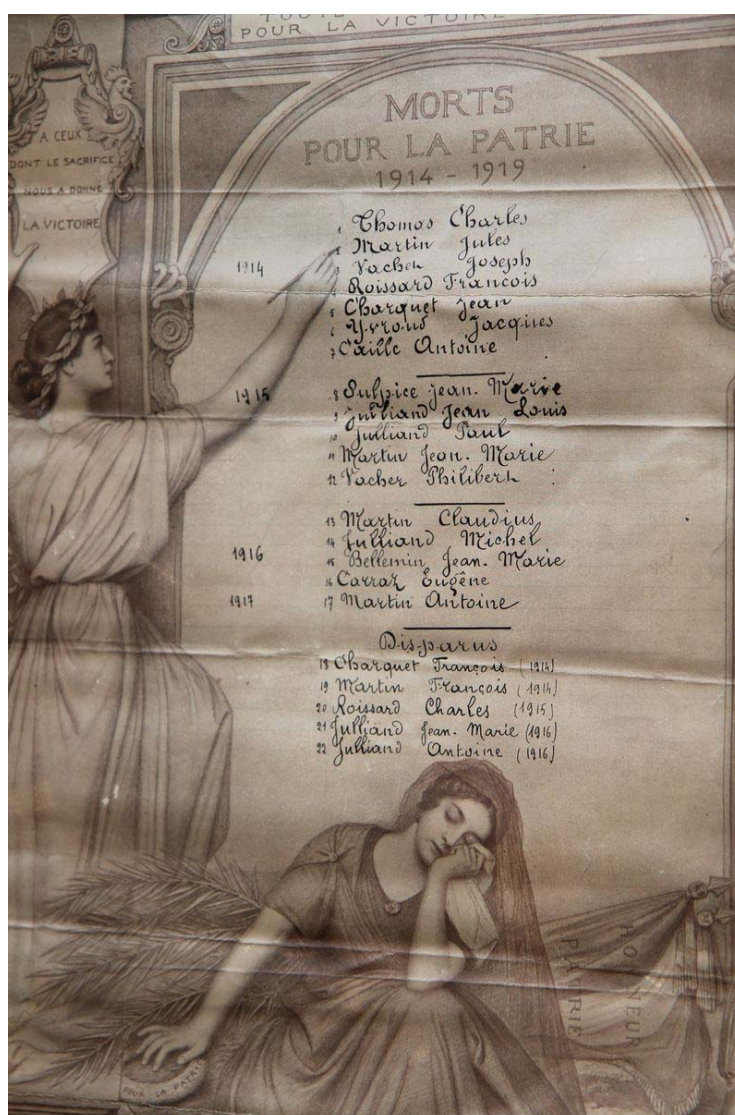 POUR LA VICTOIRE
A CEUX
DONT LE SACRIFICE
NOUS A DONNÉ
LA VICTOIRE
MORTS
POUR LA PATRIE
1914 - 1919
1914
1 Thomas Charles
2 Martin Jules
3 Vacher Joseph
4 Roissard François
5 Charquet Jean
6 Yvroud Jacques
7 Caille Antoine
1915
8 Sulpice Jean. Marie
9 Julliand Jean Louis
10 Julliand Paul
11 Martin Jean. Marie
12 Vacher Philibert
1916
13 Martin Claudius
14 Julliand Michel
15 Bellemin Jean. Marie
16 Carraz Eugène
1917
17 Martin Antoine
Disparus
18 Charquet François (1914)
19 Martin François (1914)
20 Roissard Charles (1915)
21 Julliand Jean. Marie (1916)
22 Julliand Antoine (1916)
HONNEUR
PATRIE
POUR LA PATRIE